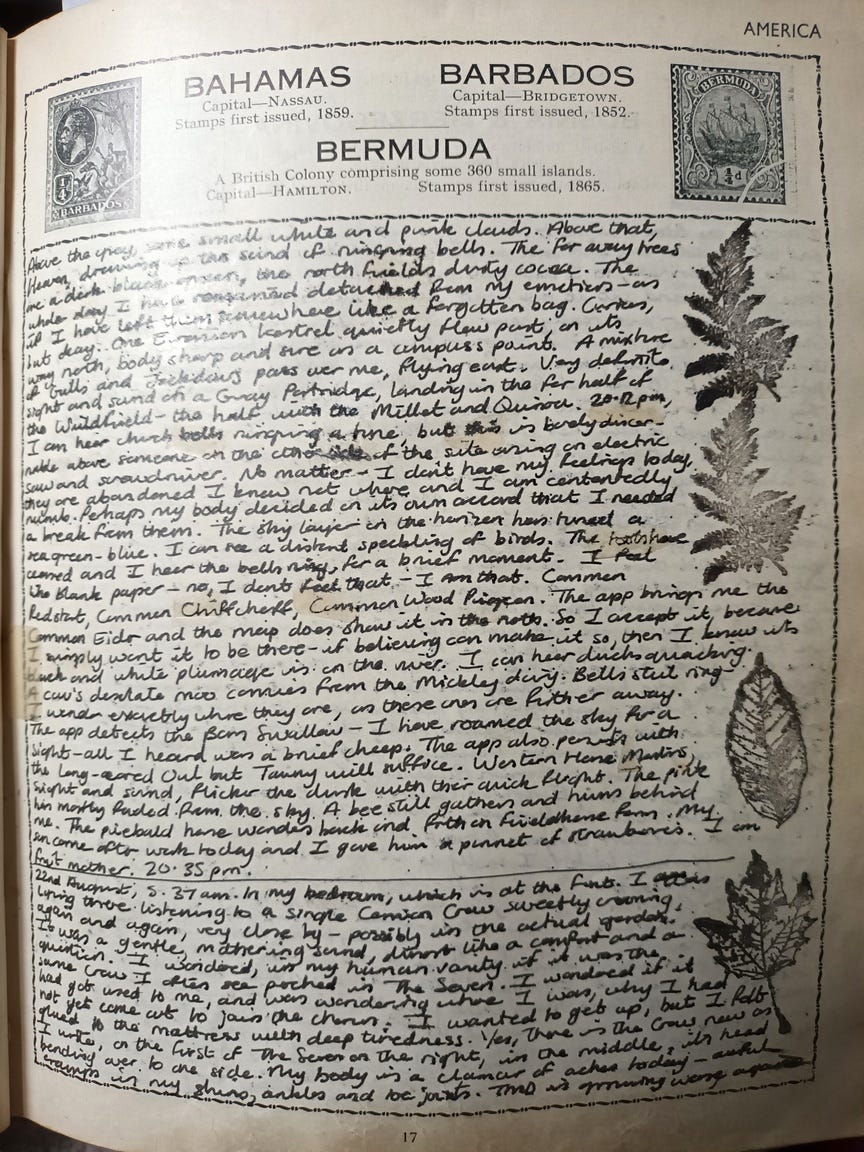 AMERICA
BAHAMAS
Capital—NASSAU.
Stamps first issued, 1859.
BARBADOS
Capital—BRIDGETOWN.
Stamps first issued, 1852.
BERMUDA
A British Colony comprising some 360 small islands.
Capital—HAMILTON. Stamps first issued, 1865.
BARBADOS
BERMUDA
Above the grey, some small white and pink clouds. Above that,
Heaven, drawing up the sound of ringing bells. The far away trees
are a dark black-green, the north fields dusty cocoa. The
whole day I have remained detached from my emotions - as
if I have left them somewhere like a forgotten bag. Curious,
but okay. One Eurasian Kestrel quietly flew past, on its
way north, body sharp and sure as a compass point. A mixture
of Gulls and Jackdaws pass over me, flying east. Very definite
sight and sound of a Grey Partridge, landing in the far half of
the Wildfield - the half with the Millet and Quinoa. 20.12pm,
I can hear church bells ringing a tune, but this is barely discer-
nable above someone on the other side of the site using an electric
saw and screwdriver. No matter - I don't have my feelings today,
they are abandoned I know not where and I am contentedly
numb. Perhaps my body decided on its own accord that I needed
a break from them. The sky layer on the horizon has turned a
sea green-blue. I can see a distant speckling of birds. The tools have
ceased and I hear the bells ring, for a brief moment. I feel
like blank paper - no, I don't feel that - I am that. Common
Redstart, Common Chiffchaff, Common Wood Pigeon. The app brings me the
Common Eider and the map does show it in the north. So I accept it, because
I simply want it to be there - if believing can make it so, then I know its
black and white plumage is on the river. I can hear ducks quacking.
A cow's desolate moo carries from the Mickley dairy. Bells still ring -
I wonder exactly where they are, as these ones are further away.
The app detects the Barn Swallow - I have roamed the sky for a
sight - all I heard was a brief cheep. The app also persists with
the Long-eared Owl but Tawny will suffice. Western House Martins,
sight and sound, flicker the dusk with their quick flight. The pink
has mostly faded from the sky. A bee still gathers and hums behind
me. The piebald horse wanders back and forth on Fieldhouse Farm. My
son came after work today and I gave him a punnet of strawberries. I am
fruit mother. 20.35pm.
22nd August, 5.37am. In my bedroom, which is at the front. I was
lying there listening to a single Carrion Crow sweetly crowing,
again and again, very close by - possibly in the actual garden.
It was a gentle, mothering sound, almost like a comfort and a
question. I wondered, in my human vanity if it was the
same Crow I often see perched in The Seven. I wondered if it
had got used to me, and was wondering where I was, why I had
not yet come out to join the chorus. I wanted to get up, but I felt
glued to the mattress with deep tiredness. Yes, there is the Crow now as
I write, on the first of The Seven on the right, in the middle, its head
bending over to one side. My body is a clamour of aches today - awful
cramps in my shins, ankles and toe joints. This is growing worse again
17